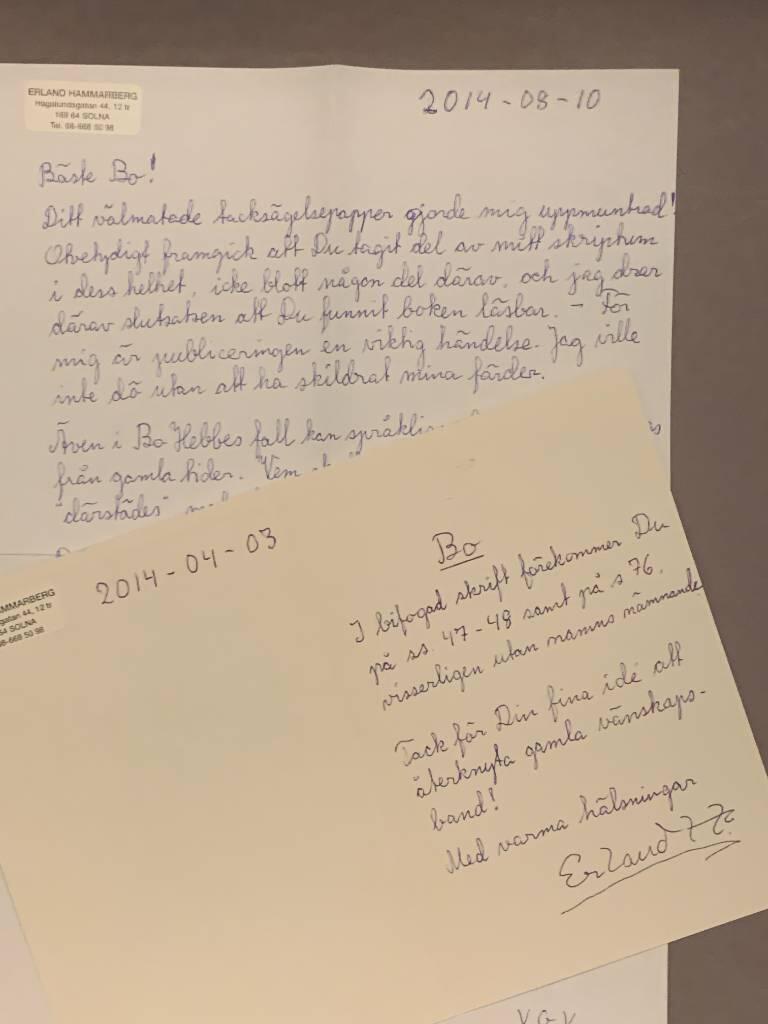 ERLAND HAMMARBERG
Hagalundsgatan 44, 12 tr
169 64 SOLNA
Tel. 08-668 50 98
2014-08-10
Bäste Bo!
Ditt välmatade tacksägelsepapper gjorde mig uppmuntrad!
Otvetydigt framgick att Du tagit del av mitt skriptum
i dess helhet, icke blott någon del därav, och jag drar
därav slutsatsen att Du funnit boken läsbar. – För
mig är publiceringen en viktig händelse. Jag ville
inte dö utan att ha skildrat mina färder.
Även i Bo Hebbes fall kan
från gamla tider. Vem
"därstädes"
AMMARBERG
gatan 44, 12 tr
64 SOLNA
08-668 50 98
2014-04-03
Bo
I bifogad skrift förekommer Du
på ss. 47-48 samt på s 76.
visserligen utan namns nämnande
Tack för Din fina idé att
återknyta gamla vänskaps-
band!
Med varma hälsningar
Erland H.